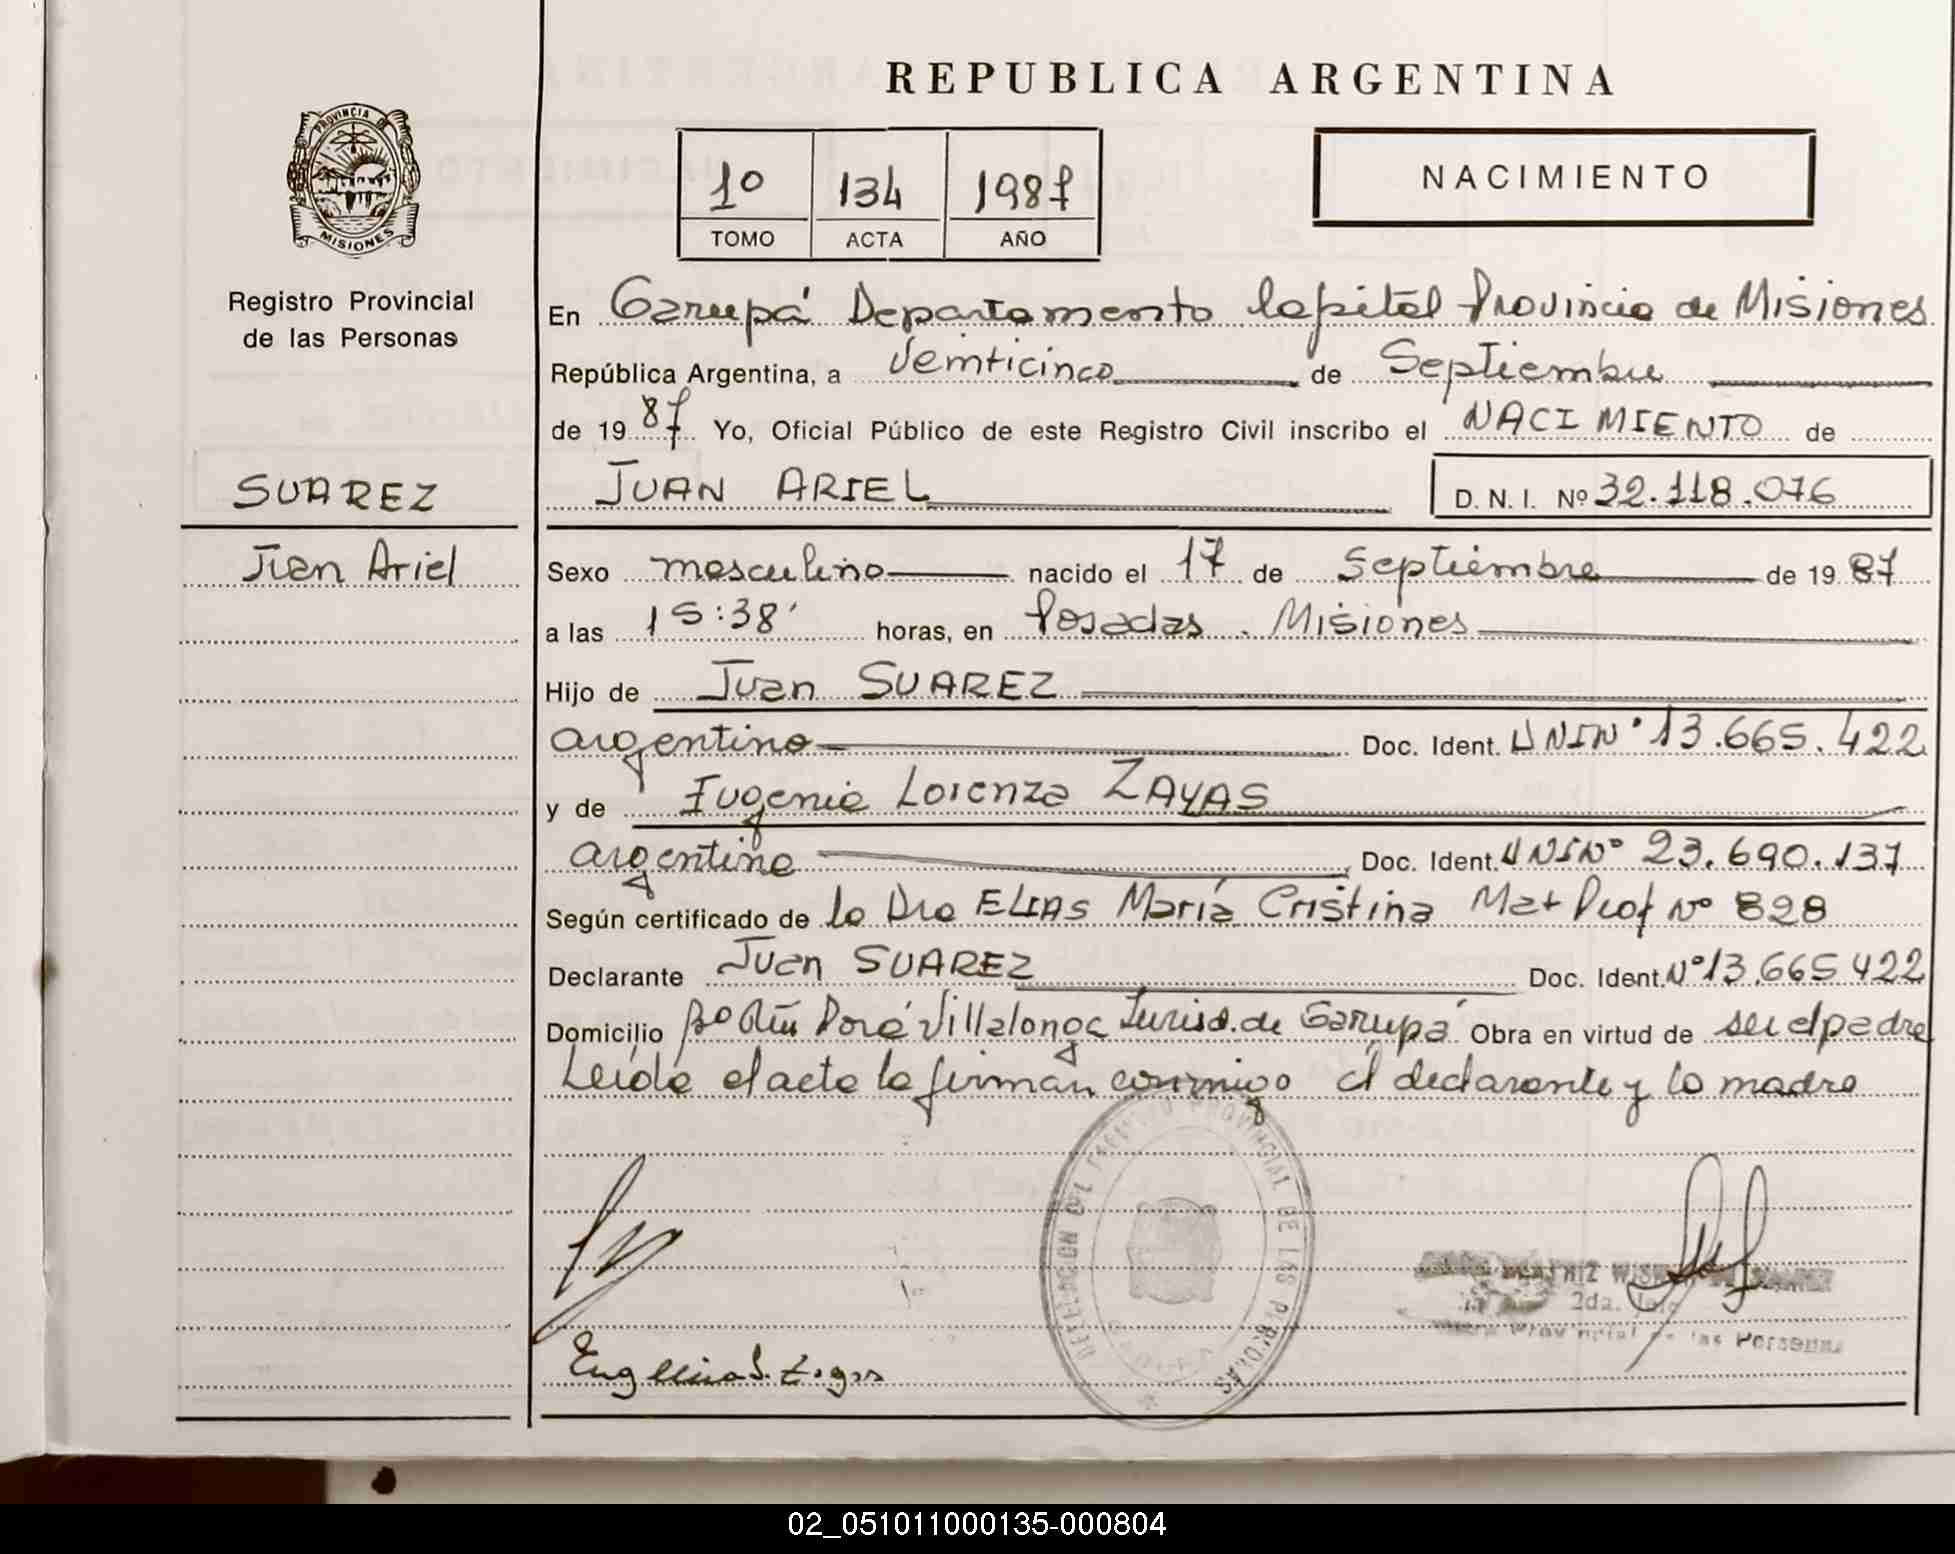 REPUBLICA ARGENTINA
PROVINCIA DE
MISIONES
Registro Provincial
de las Personas
1º 134 1987
TOMO ACTA AÑO
NACIMIENTO
En Garupá Departamento Capital Provincia de Misiones
República Argentina, a Veinticinco de Septiembre
de 19 87 Yo, Oficial Público de este Registro Civil inscribo el NACIMIENTO de
SUAREZ
JUAN ARIEL D. N. I. Nº 32.118.076
Juan Ariel
Sexo masculino nacido el 17 de Septiembre de 19 87
a las 15:38' horas, en Posadas. Misiones
Hijo de Juan SUAREZ
argentino Doc. Ident. DNI Nº 13.665.422
y de Eugenia Lorenza ZAYAS
argentina Doc. Ident. DNI Nº 23.690.137
Según certificado de la Dra ELIAS María Cristina Mat Prof Nº 828
Declarante Juan SUAREZ Doc. Ident. Nº 13.665.422
Domicilio Villalonga Jurisd. de Garupá Obra en virtud de ser el padre
Leída el acta la firman conmigo el declarante y la madre
DELEGACION DEL REGISTRO PROVINCIAL DE LAS PERSONAS
BEATRIZ
2da.
Provincial de las Personas
02_051011000135-000804